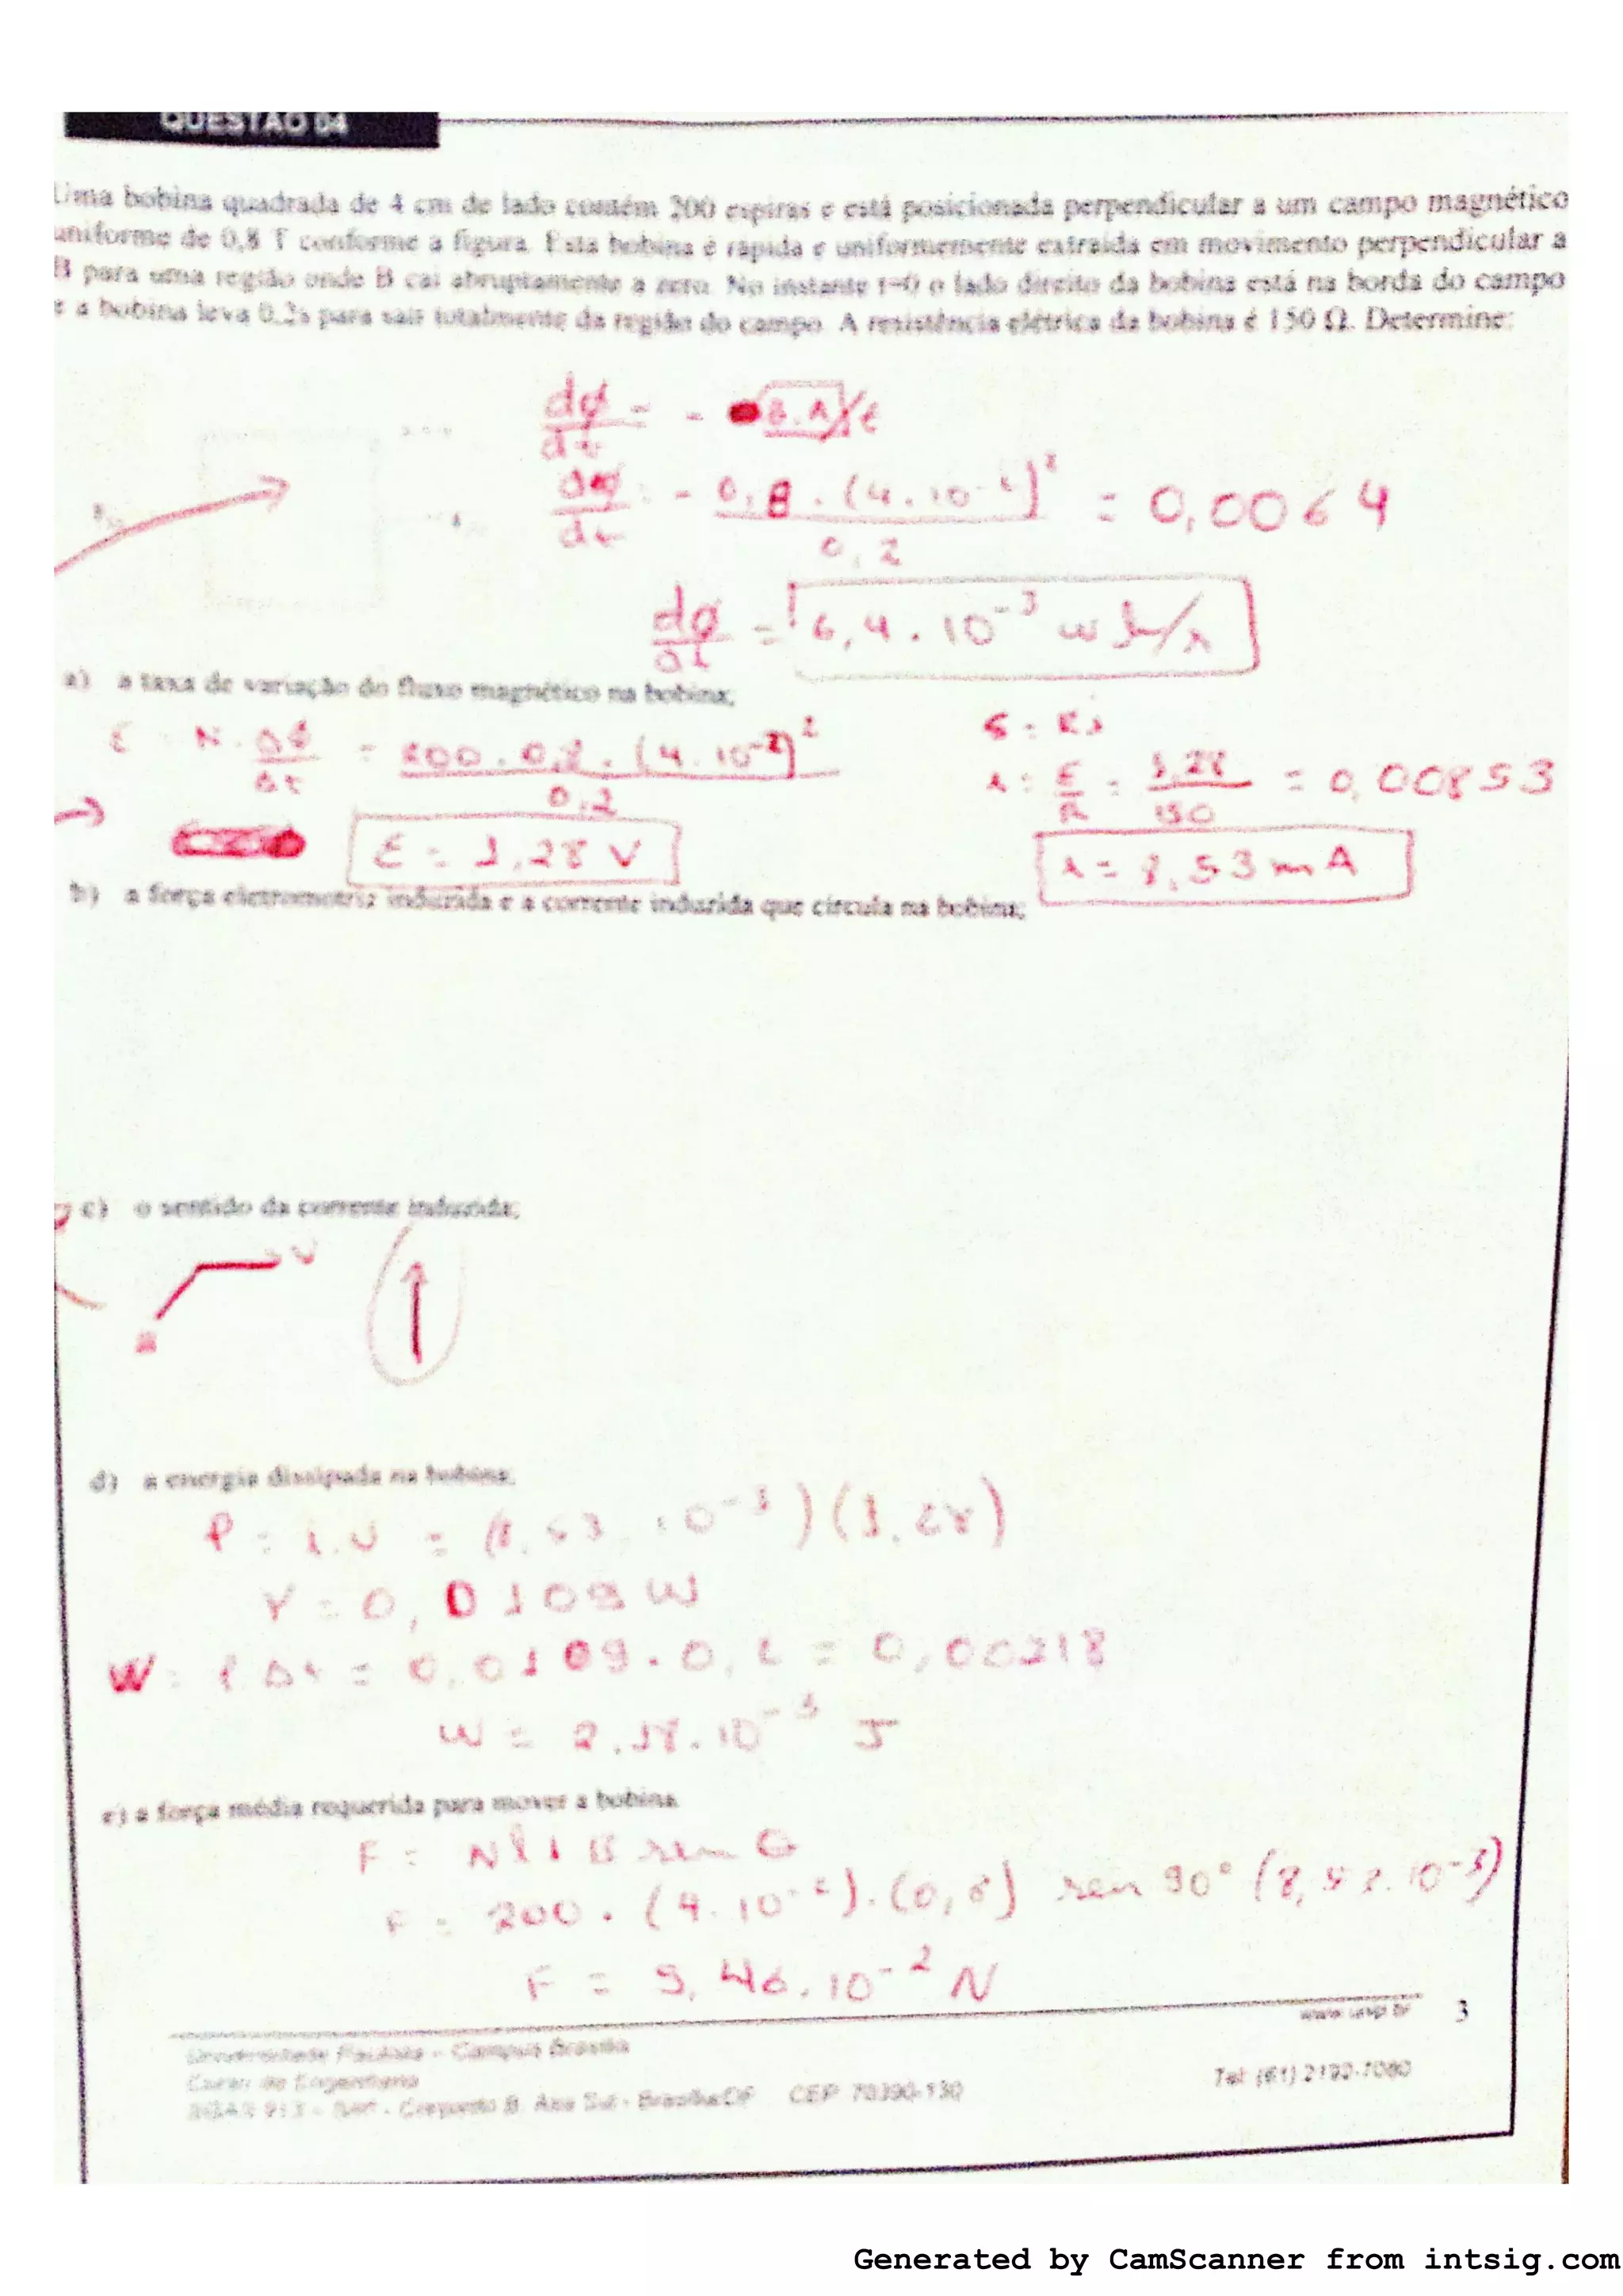 QUESTÃO 04
Uma bobina quadrada de 4 cm de lado contém 200 espiras e está posicionada perpendicular a um campo magnético
uniforme de 0,8 T conforme a figura. Esta bobina é rápida e uniformemente extraída em movimento perpendicular a
B para uma região onde B cai abruptamente a zero. No instante t=0 o lado direito da bobina está na borda do campo
e a bobina leva 0,2s para sair totalmente da região do campo. A resistência elétrica da bobina é 150 Ω. Determine:
dφ/dt = - B.A/t
dφ/dt = - 0,8 . (4.10⁻²)² / 0,2 = 0,0064
dφ/dt = 6,4 . 10⁻³ wb/s
a) a taxa de variação do fluxo magnético na bobina;
ε = N . Δφ/Δt = 200 . 0,8 . (4.10⁻²)² / 0,2
ε = Ri
i = ε/R = 1,28/150 = 0,00853
ε = 1,28 V
i = 8,53 mA
b) a força eletromotriz induzida e a corrente induzida que circula na bobina;
c) o sentido da corrente induzida;
V
d) a energia dissipada na bobina;
P = i.V = (8,53.10⁻³)(1,28)
P = 0,0109 W
W = P.Δt = 0,0109 . 0,2 = 0,00218
W = 2,18.10⁻³ J
e) a força média requerida para mover a bobina.
F = N l i B sen θ
F = 200 . (4.10⁻²).(0,8) sen 90° (8,53.10⁻³)
F = 5,46.10⁻² N
www.unip.br 3
Universidade Paulista - Campus Brasília
Curso de Engenharia
SGAS 913 - Conjunto B Asa Sul - Brasília/DF CEP 70390-130
Tel: (61) 2192-7080
Generated by CamScanner from intsig.com